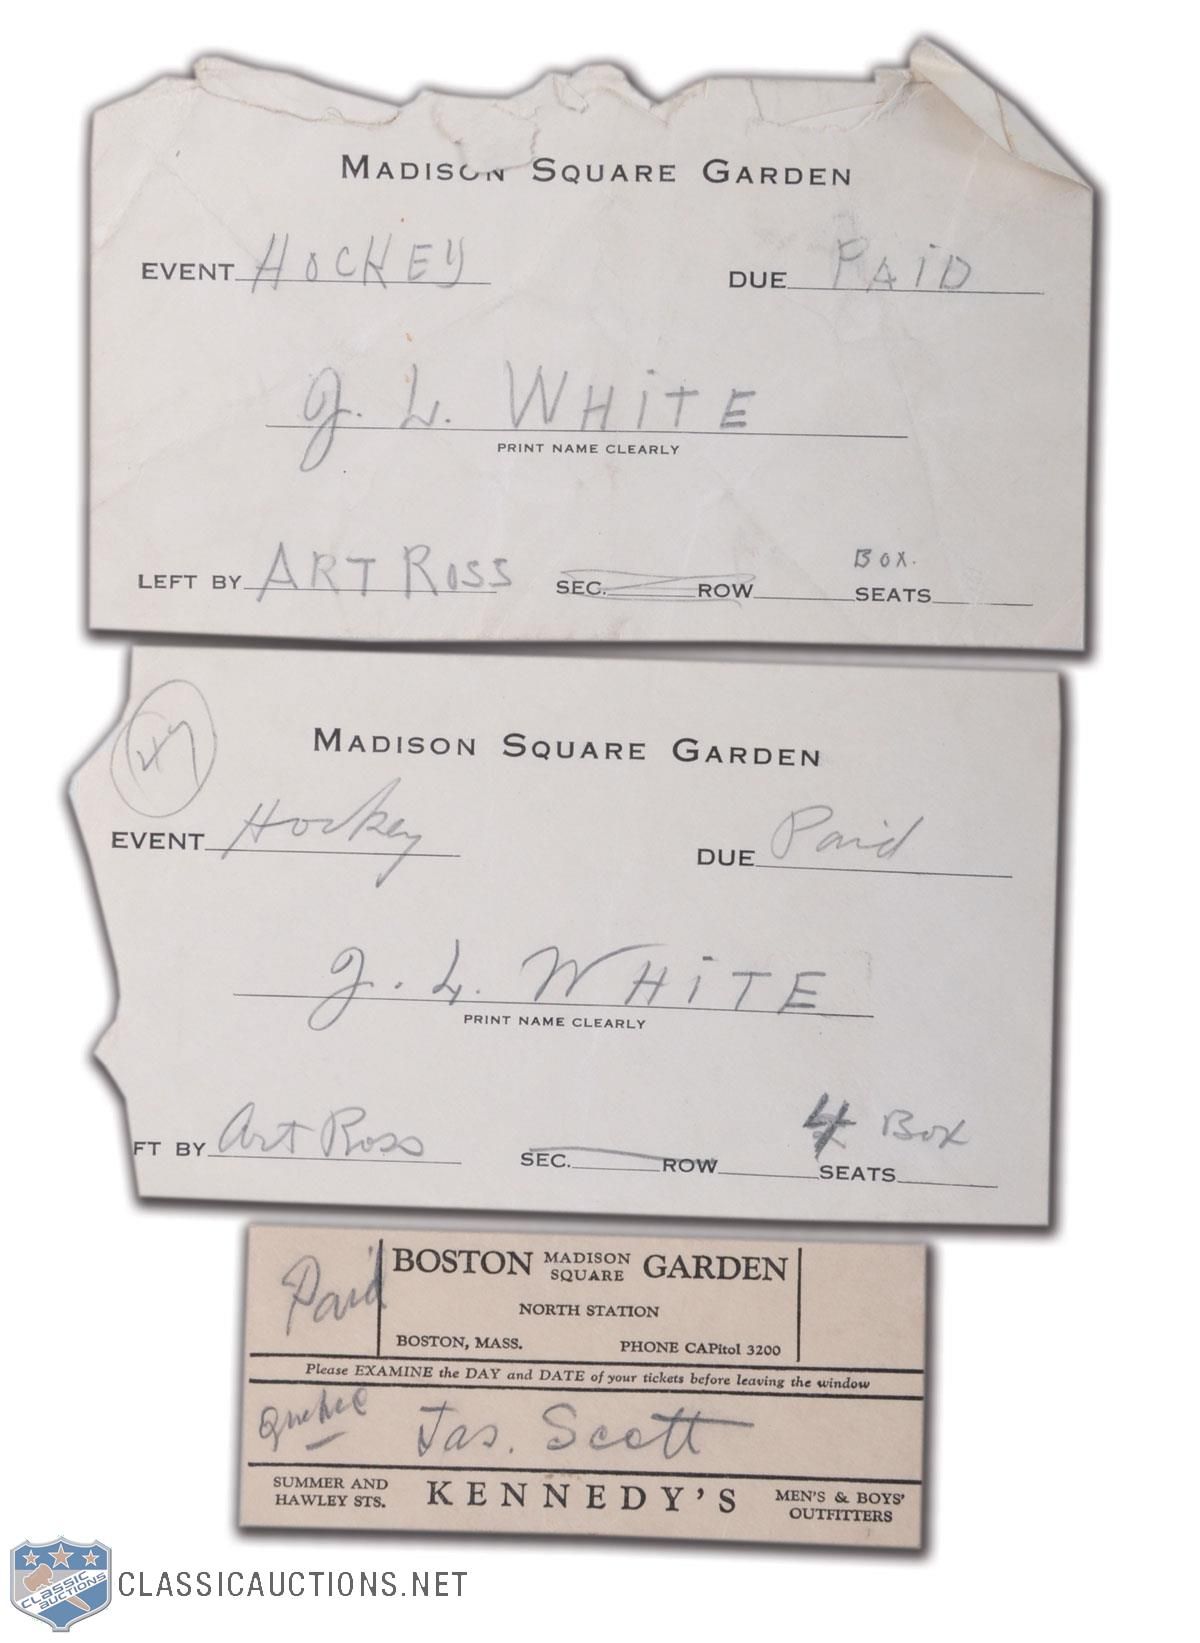 MADISON SQUARE GARDEN
EVENT HOCKEY DUE PAID
J. L. WHITE
PRINT NAME CLEARLY
BOX.
LEFT BY ART ROSS SEC. ROW SEATS
MADISON SQUARE GARDEN
EVENT Hockey DUE Paid
J. L. WHITE
PRINT NAME CLEARLY
4 Box
FT BY Art Ross SEC. ROW SEATS
Paid
BOSTON MADISON SQUARE GARDEN
NORTH STATION
BOSTON, MASS. PHONE CAPitol 3200
Please EXAMINE the DAY and DATE of your tickets before leaving the window
Quebec Jas. Scott
SUMMER AND HAWLEY STS. KENNEDY'S MEN'S & BOYS' OUTFITTERS
CLASSIC AUCTIONS
CLASSICAUCTIONS.NET